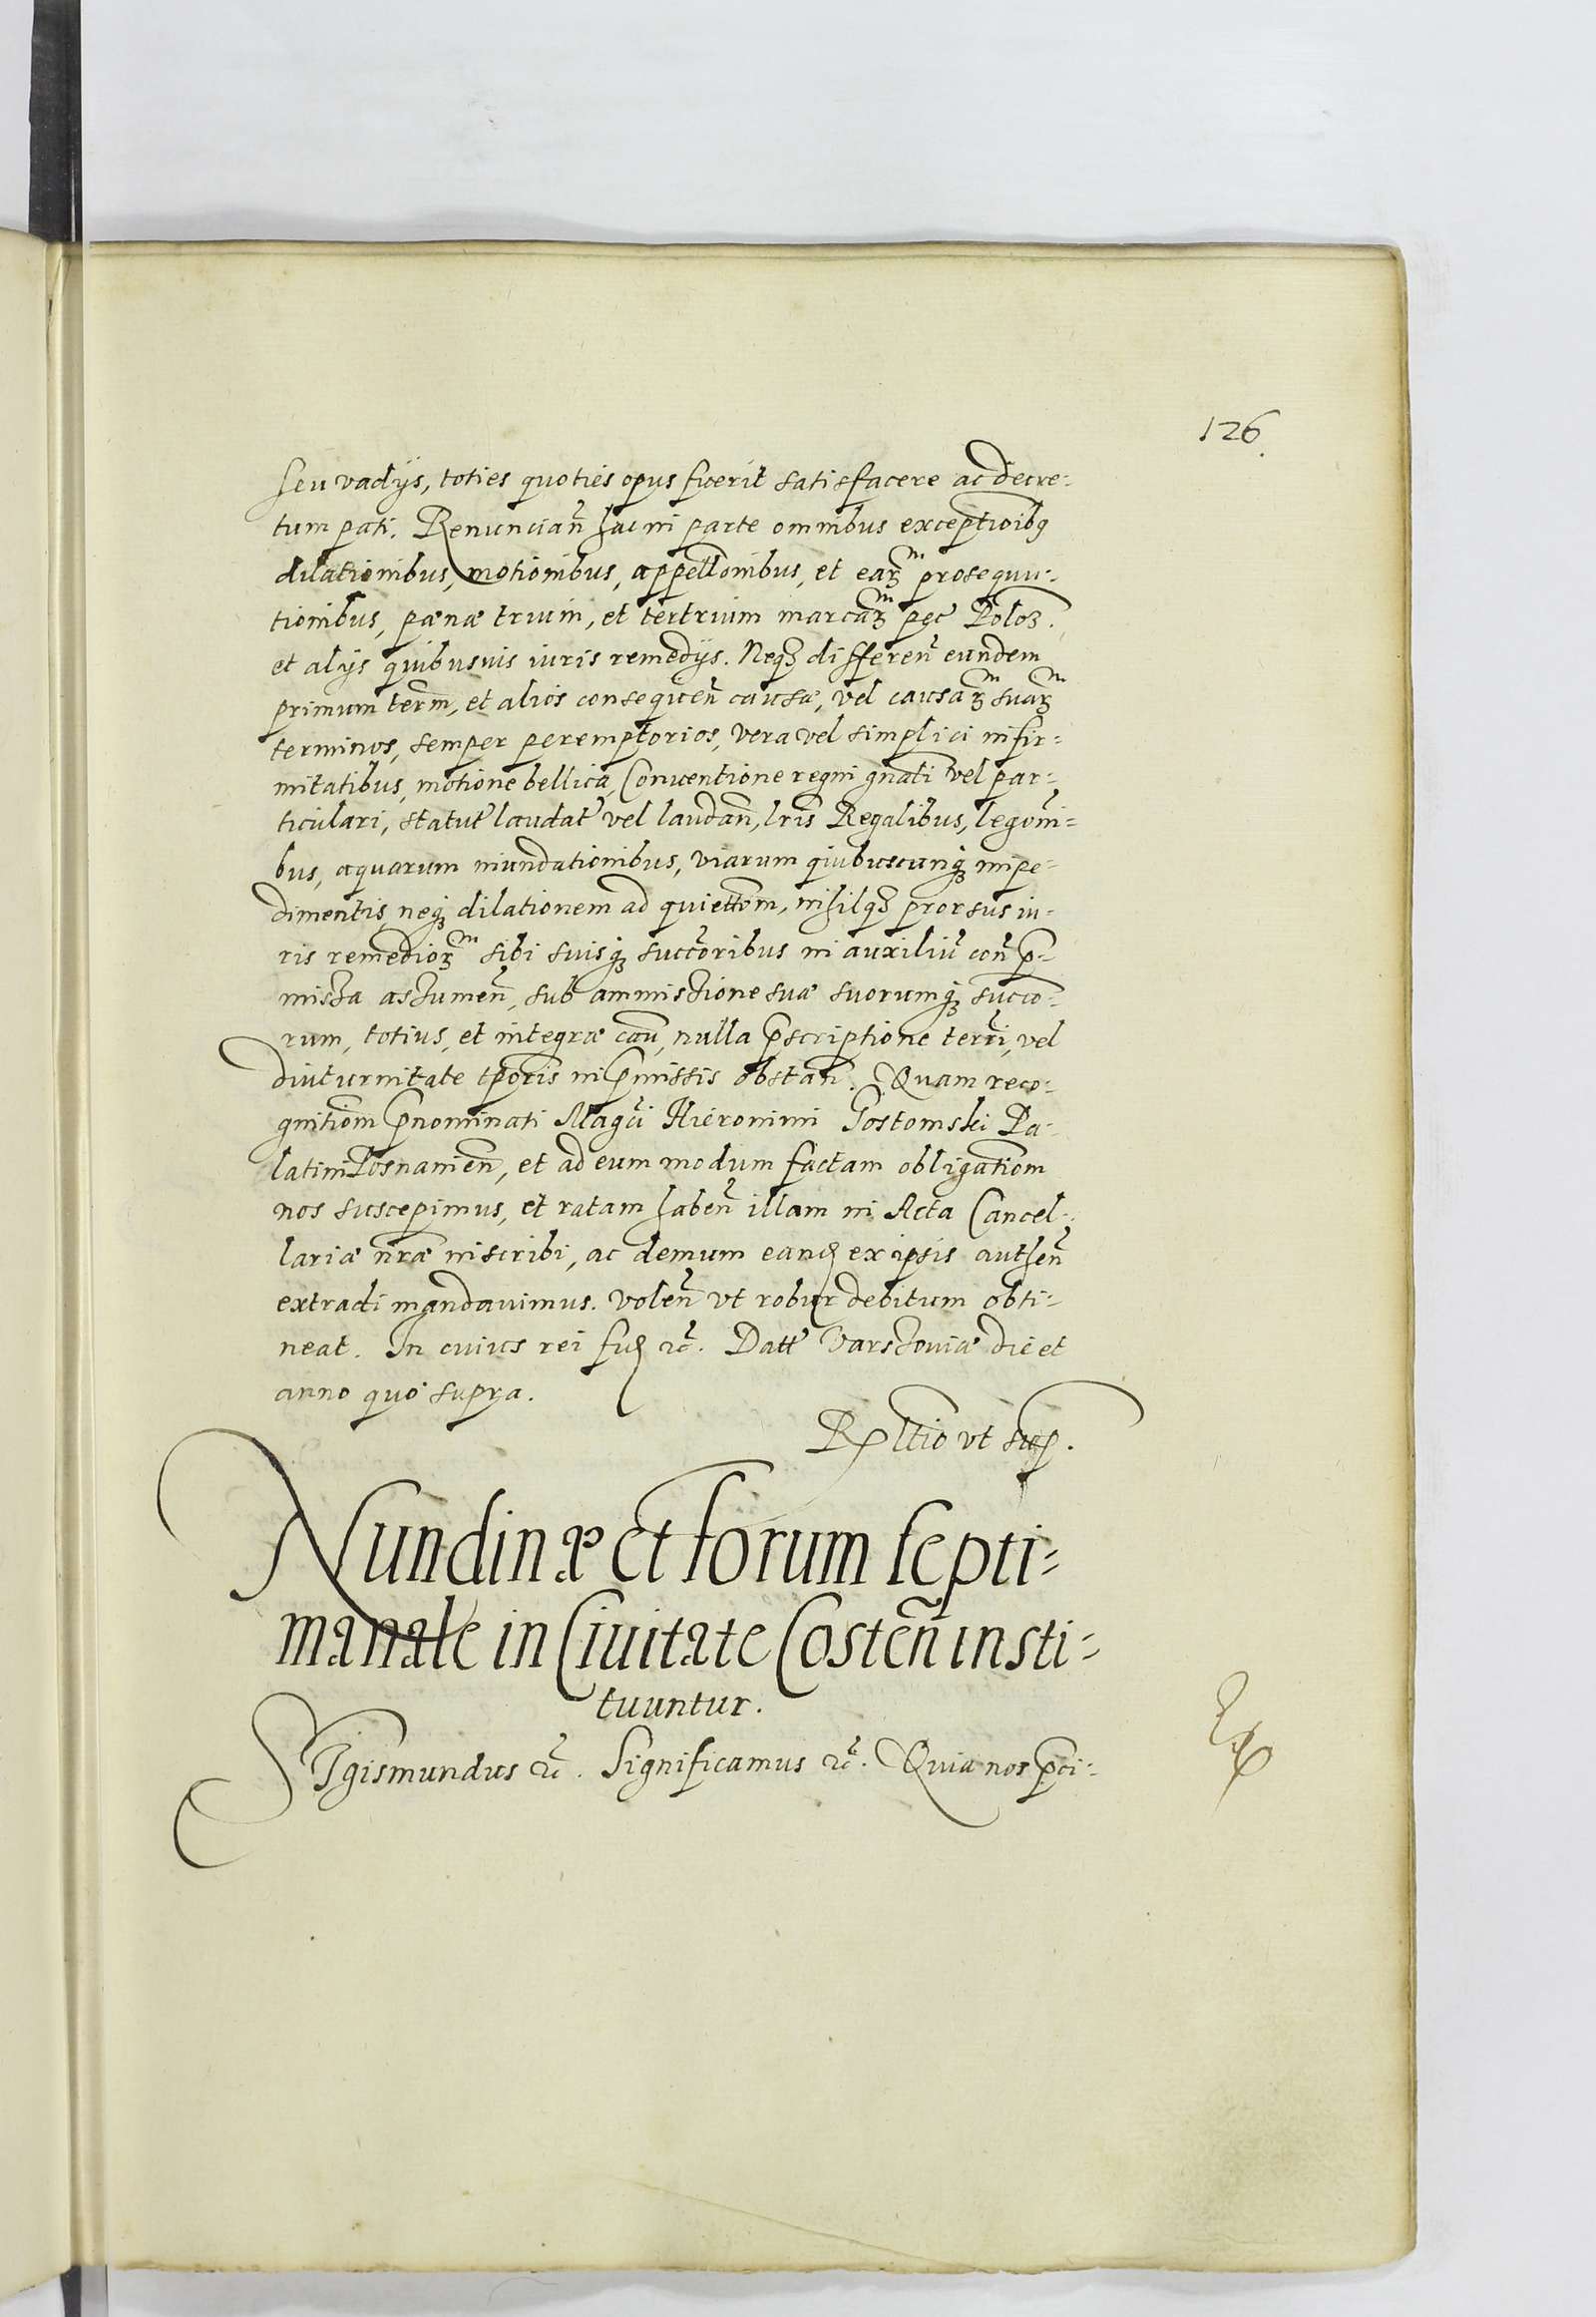 126.
seu vadÿs, toties quoties opus fuerit satisfacere ac decre-
tum pati. Renuncian̄ hac in parte omnibus exceptioibq
dilationibus, motionibus, appellōnibus, et earꝝ prosequu-
tionibus, pœnæ trium, et tertrium marcarꝝ pec̄ Poloꝝ.
et alÿs quibusuis iuris remedÿs. Neqꝫ differen̄ eundem
primum term̄, et alios consequen̄ causæ, vel causarꝝ suarꝝ
terminos, semper peremptorios, vera vel simplici infir-
mitatibus, motione bellica, Conuentione regni gn̄ali vel par-
ticulari, statut̄ laudat̄ vel laudan̄, lr̄is Regalibus, legōni-
bus, aquarum inundationibus, viarum quibuscunqꝫ impe-
dimentis, neqꝫ dilationem ad quiettōm, nihilqꝫ prorsus iu-
ris remediorꝝ sibi suisqꝫ succoribus in auxiliū con̄ p̄-
missa assumen̄, sub ammissione suæ suorumqꝫ succo-
rum, totius, et integræ cau̅, nulla p̄scriptione terr̄i, vel
diuturnitate tp̄oris in p̄missis obstan̄. Quam reco-
gnitiōm p̄nominati Magc̄i Hieronimi Gostomski Pa-
latini Posnanien̄, et ad eum modum factam obligatiōm
nos suscepimus, et ratam haben̄ illam in Acta Cancel-
lariæ nr̄æ inscribi, ac demum eand ex ipsis authen̄
extradi mandauimus. Volen̄ vt robur debitum obti-
neat. In cuius rei fid ⁊c̄. Datt̄ Varssouiæ die et
anno quo supra.
Rltio vt sup.
Nundinæ et forum septi-
manale in Ciuitate Costen̄ insti-
tuuntur.
SIgismundus ⁊c̄. Significamus ⁊c̄. Quia nos p̄ci-